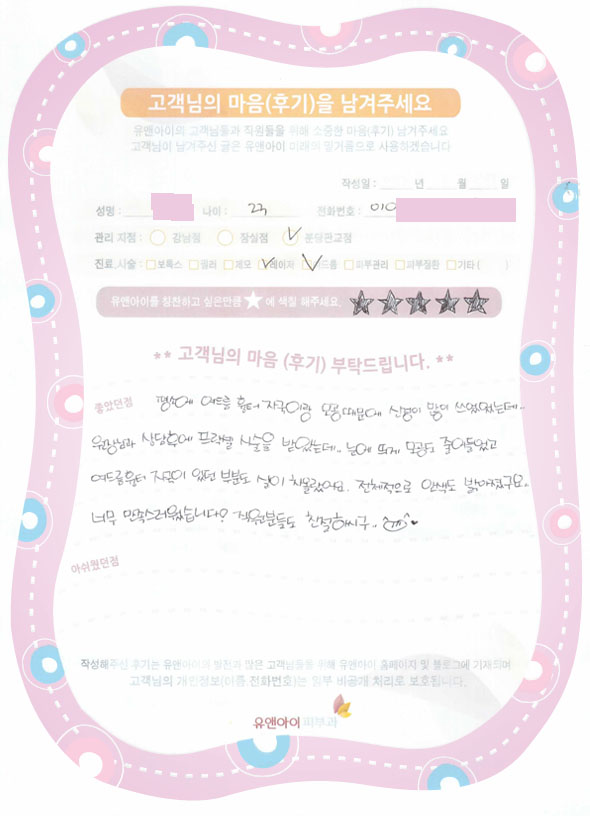 고객님의 마음(후기)을 남겨주세요
유앤아이의 고객님들과 직원들을 위해 소중한 마음(후기) 남겨주세요
고객님이 남겨주신 글은 유앤아이 미래의 밑거름으로 사용하겠습니다
작성일 : 년 월 일
성명 : 나이 : 23 전화번호 : 010
관리 지점 : 강남점 잠실점 분당판교점
진료,시술 : 보톡스 필러 제모 레이저 여드름 피부관리 피부질환 기타 ( )
유앤아이를 칭찬하고 싶은만큼 ★ 에 색칠 해주세요. ★★★★★
** 고객님의 마음 (후기) 부탁드립니다. **
좋았던점 평소에 여드름 흉터 자국이랑 모공때문에 신경이 많이 쓰였었는데..
원장님과 상담후에 프락셀 시술을 받았는데.. 눈에 띄게 모공도 줄어들었고
여드름흉터 자국이 있던 부분도 살이 차올랐어요. 전체적으로 안색도 밝아졌구요.
너무 만족스러웠습니다? 직원분들도 친절하시구.. ^^ ♥
아쉬웠던점
작성해주신 후기는 유앤아이의 발전과 많은 고객님들을 위해 유앤아이 홈페이지 및 블로그에 기재되며
고객님의 개인정보(이름,전화번호)는 일부 비공개 처리로 보호됩니다.
유앤아이피부과